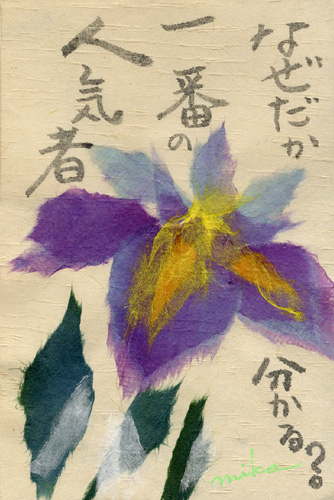 なぜだか
一番の
人気者
分かる?
mika